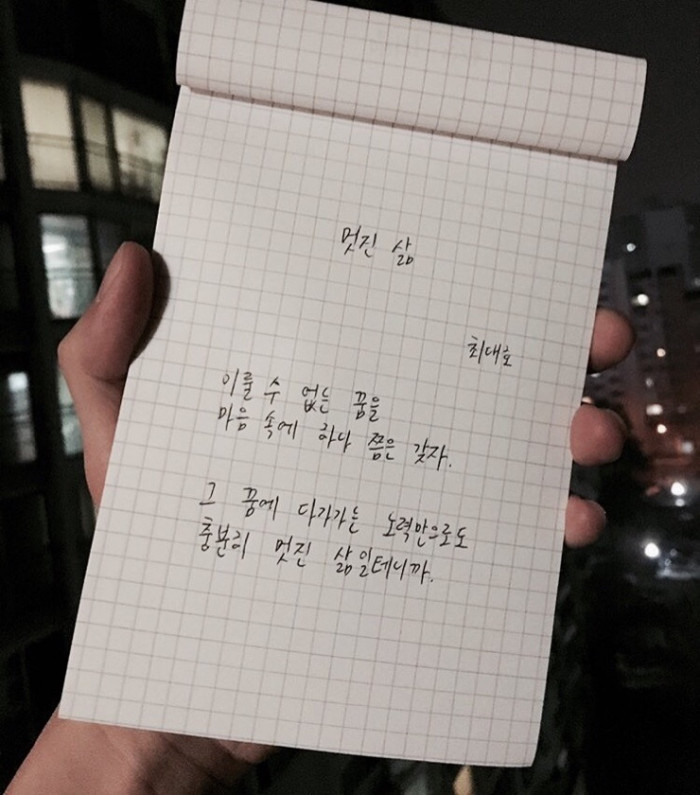 멋진 삶
최대호
이룰 수 없는 꿈을
마음 속에 하나 쯤은 갖자.
그 꿈에 다가가는 노력만으로도
충분히 멋진 삶일테니까.